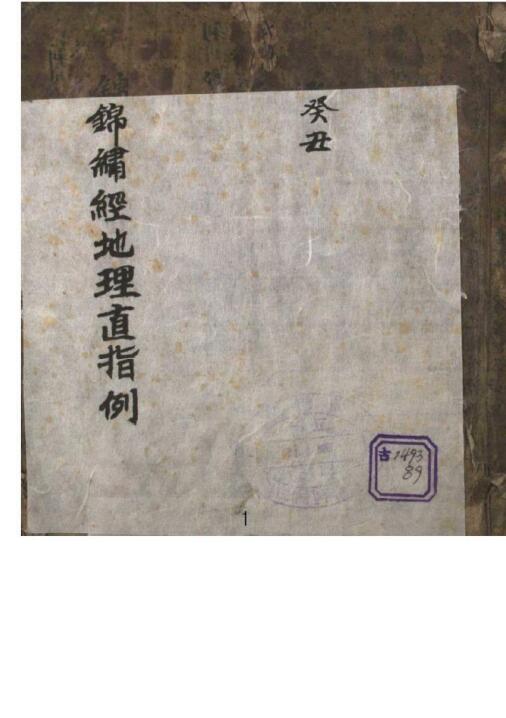 癸丑
錦繡經地理直指例
古1493
89
1